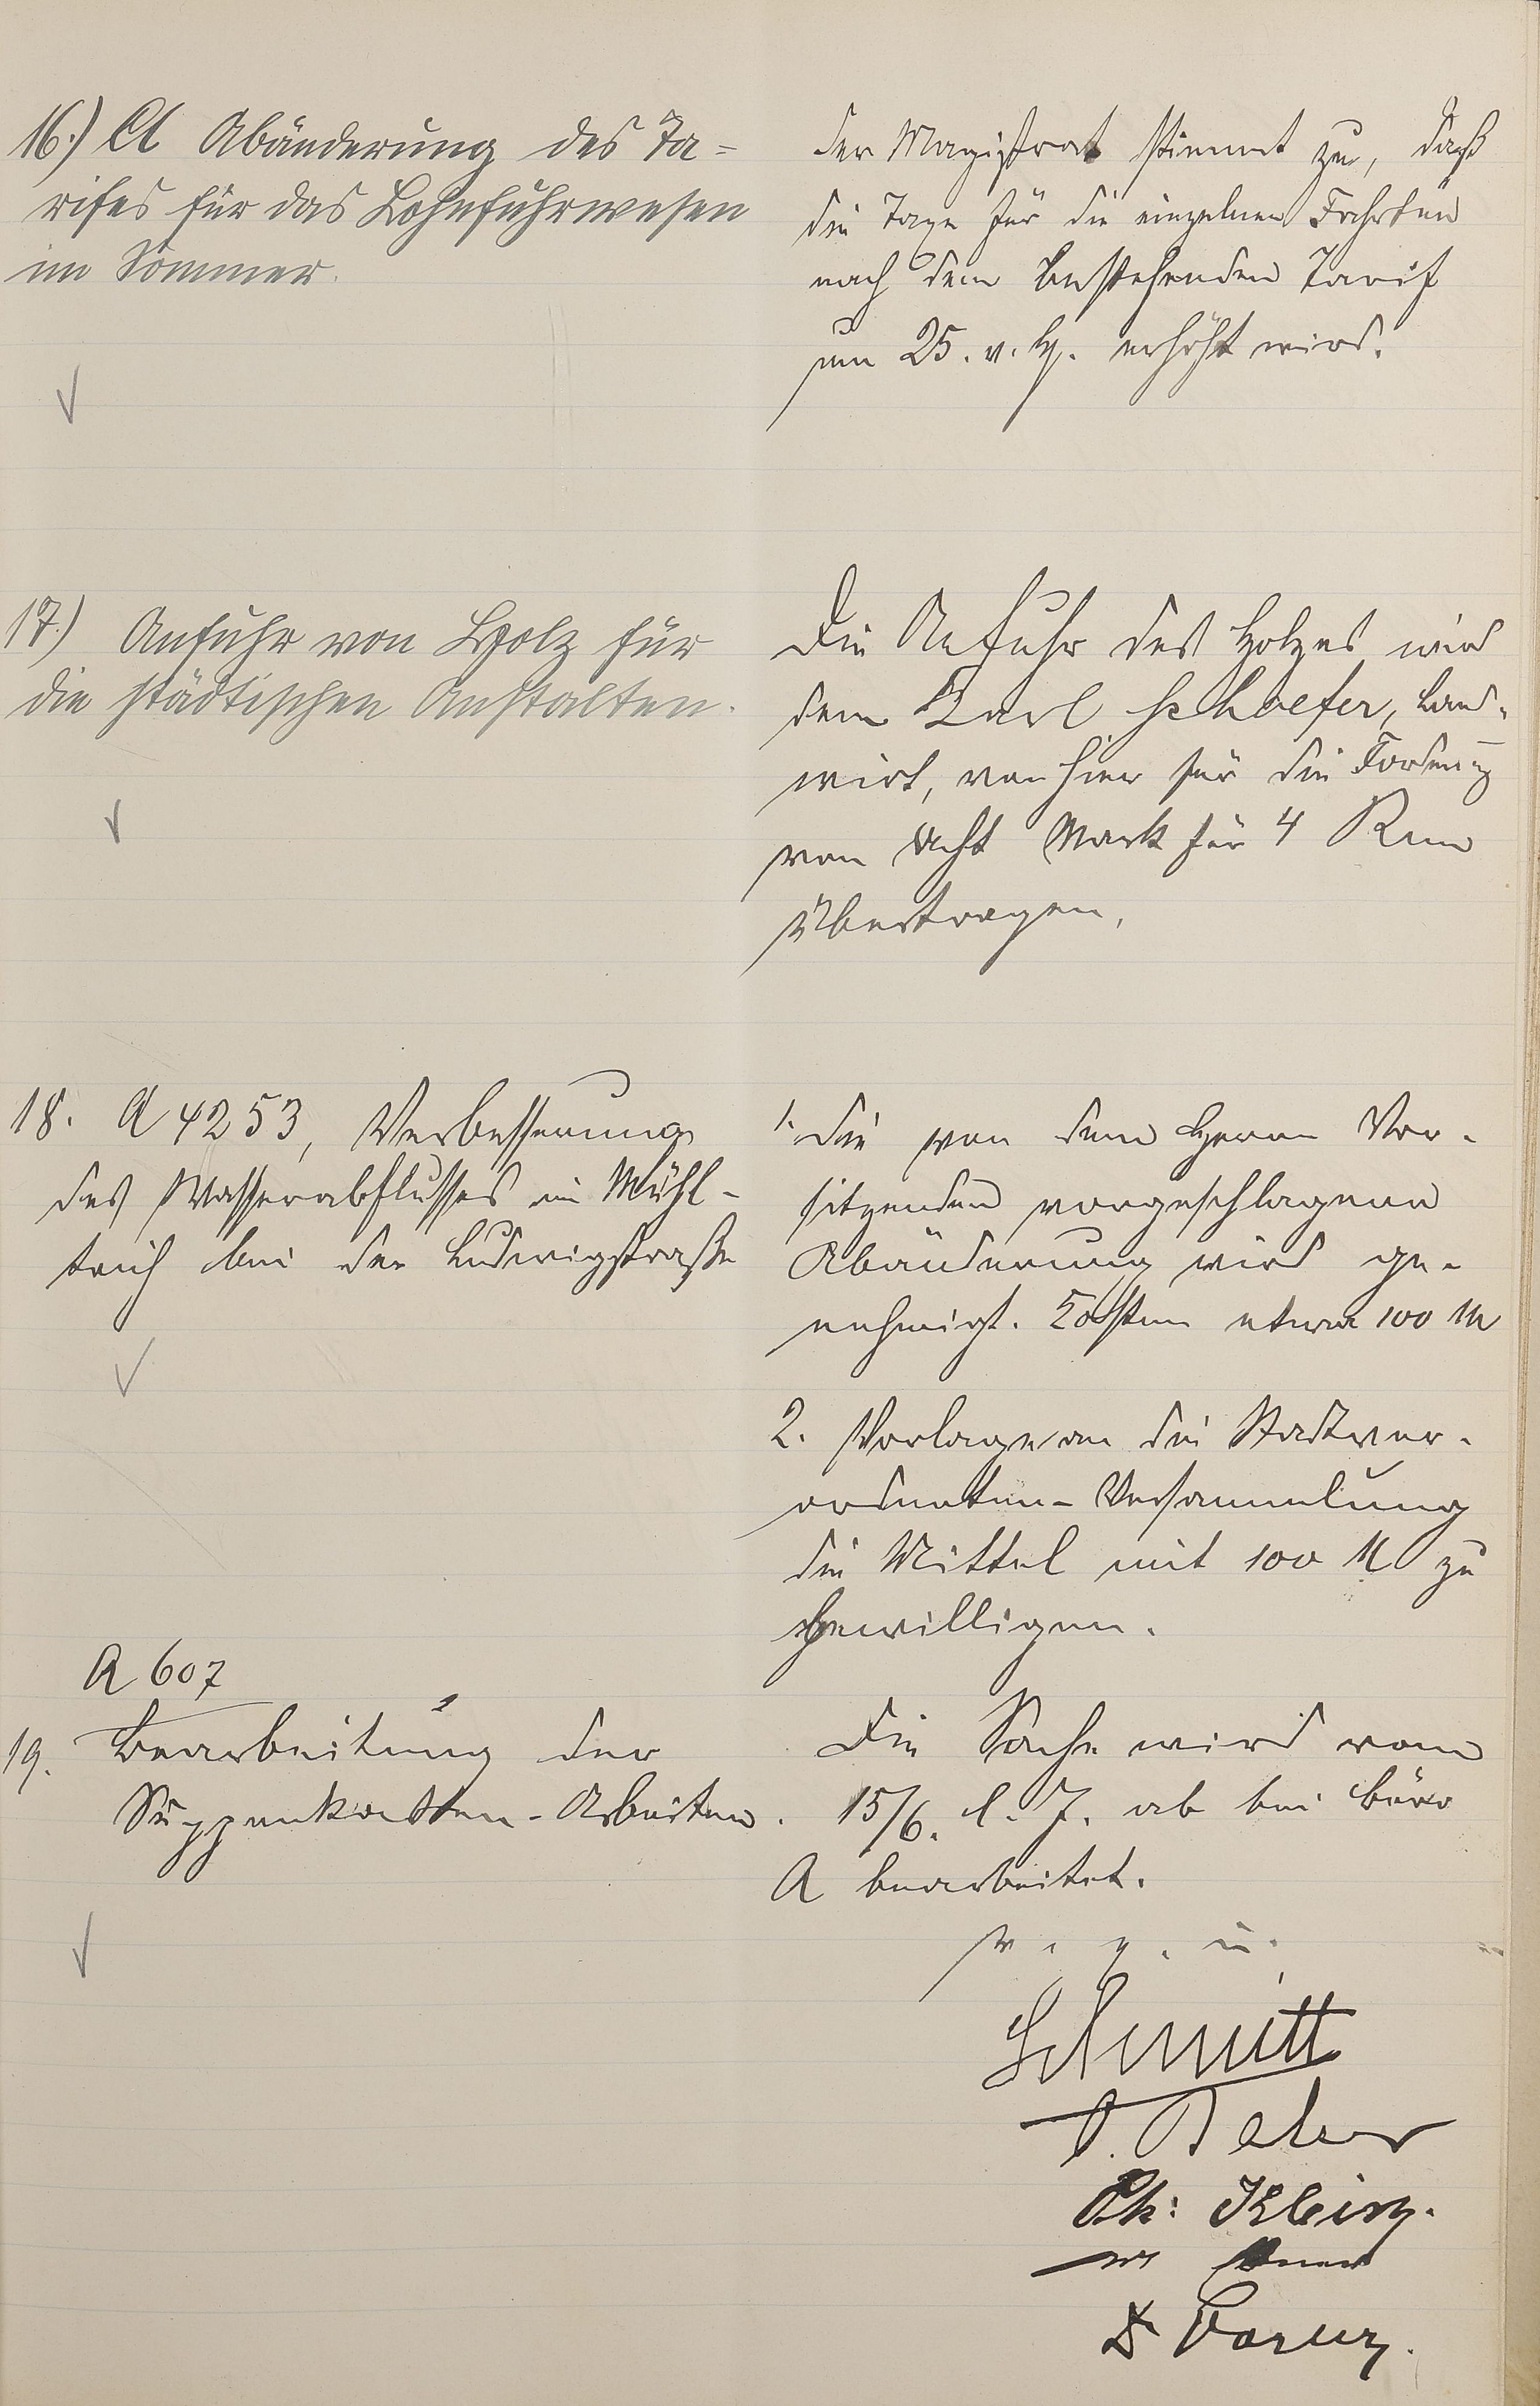 16.) A Abänderung des Ta-
rifes für das Lohnfuhrwesen
im Sommer.
Der Magistrat stimmt zu, daß
die Taxe für die einzelnen Fahrten
nach dem bestehenden Tarif
um 25. v. H. erhöht wird.
17.) Anfuhr von Holz für
die städtischen Anstalten.
Die Anfuhr des Holzes wird
dem Karl Schaefer, Land-
wirt, von hier für die Forderung
von acht Mark für 4 Rm
übertragen.
18. A 4253, Verbesserung
des Wasserabflusses im Mühl-
teich bei der Ludwigstraße
1. Die von dem Herrn Vor-
sitzenden vorgeschlagene
Abänderung wird ge-
nehmigt. Kosten etwa 100 M
2. Vorlage an die Stadtver-
ordneten-Versammlung
die Mittel mit 100 M zu
bewilligen.
A 607
19. Bearbeitung der
Suppenkarten-Arbeiten.
Die Sache wird vom
15/6. l. J. ab bei Büro
A bearbeitet.
v. g. u.
Schmitt
Ph: Klein.